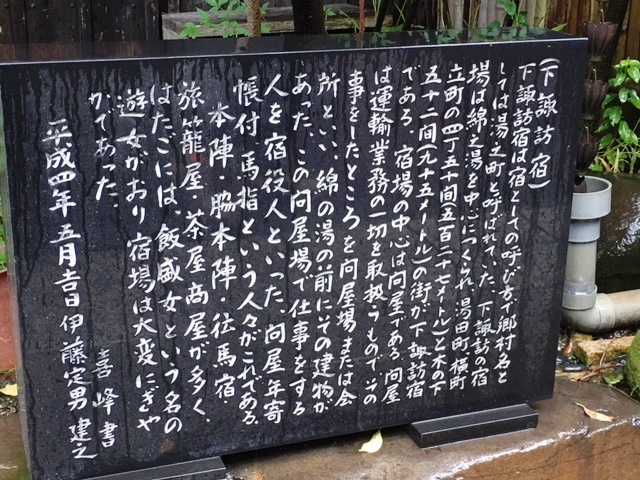 (下諏訪宿)
下諏訪宿は宿としての呼び方で郷村名と
しては湯之町と呼ばれていた、下諏訪の宿
場は綿之湯を中心につくられ、湯田町、横町
立町の四丁五十間(五百二十七メートル)と木の下
五十二間(九十五メートル)の街が下諏訪宿
である。宿場の中心は問屋である。問屋
は運輸業務の一切を取扱うもので、その
事をしたところを問屋場または会
所といい、綿の湯の前にその建物が
あった、この問屋場で仕事をする
人を宿役人といった、問屋、年寄
帳付、馬指という人々がこれである。
本陣・脇本陣・伝馬宿・
旅籠屋・茶屋、商屋が多く、
はたごには、飯盛女という名の
遊女がおり宿場は大変にぎや
かであった、
平成四年五月吉日 伊藤定男 建之
喜峰書